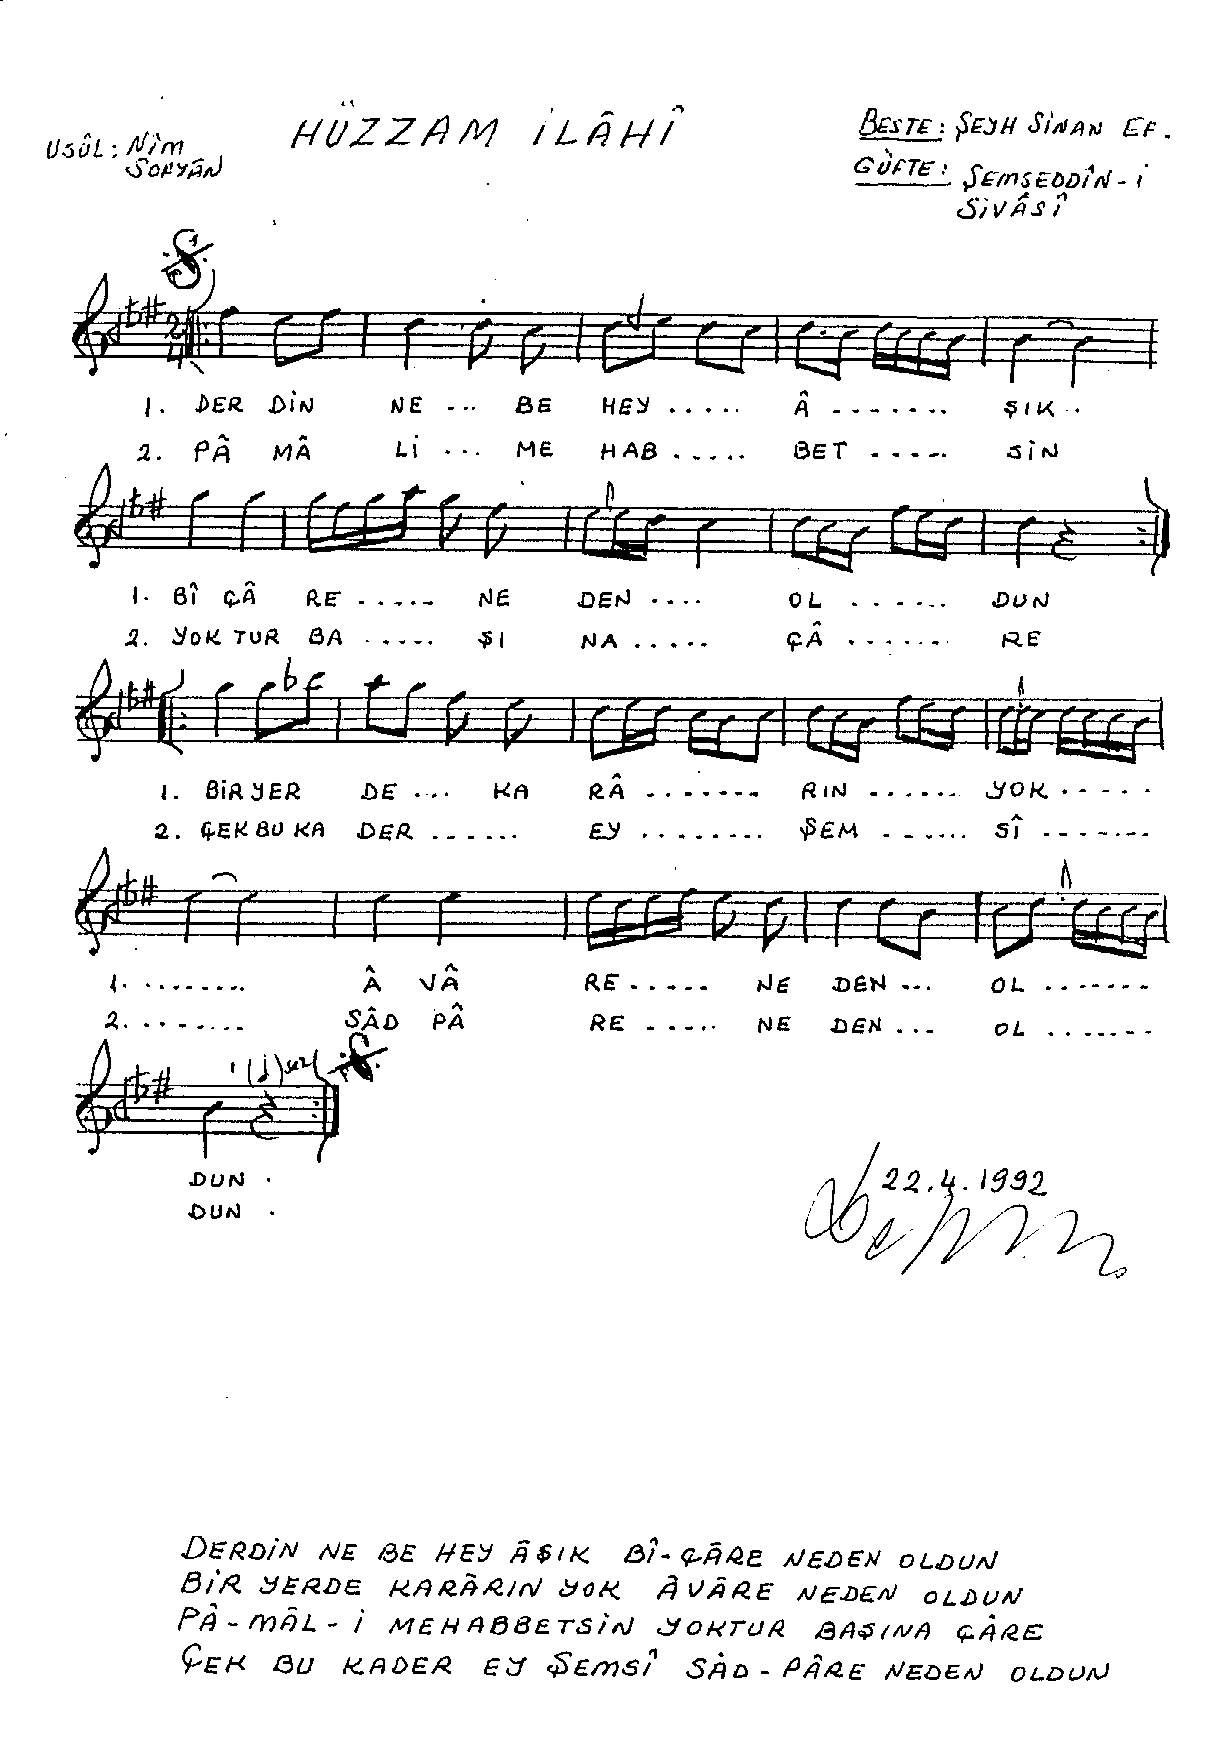 HÜZZAM İLÂHÎ
USÛL: NİM
SOFYÂN
BESTE: ŞEYH SİNAN EF.
GÜFTE: ŞEMSEDDÎN-İ
SİVÂSÎ
2
4
1. DER DİN NE ... BE HEY ..... Â ....... ŞIK ..
2. PÂ MÂ Lİ ... ME HAB ..... BET ..... SİN
1. BÎ ÇÂ RE ..... NE DEN .... OL ...... DUN
2. YOK TUR BA ..... ŞI NA ..... ÇÂ ...... RE
1. BİR YER DE ... KA RÂ ....... RIN ...... YOK .....
2. ÇEK BU KA DER ...... EY ....... ŞEM ...... SÎ .......
1. ....... Â VÂ RE ..... NE DEN ... OL .......
2. ....... SÂD PÂ RE ..... NE DEN ... OL .......
DUN .
DUN .
22.4.1992
DERDİN NE BE HEY ÂŞIK BÎ-ÇÂRE NEDEN OLDUN
BİR YERDE KARÂRIN YOK ÂVÂRE NEDEN OLDUN
PÂ-MÂL-İ MEHABBETSİN YOKTUR BAŞINA ÇÂRE
ÇEK BU KADER EY ŞEMSÎ SÂD-PÂRE NEDEN OLDUN